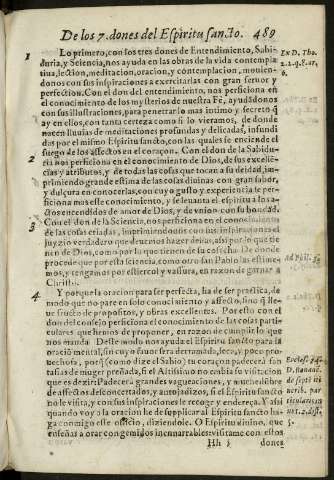 De los 7. dones del Espiritu sancto. 489
1 Lo primero, con los tres dones de Entendimiento, Sabi-
duria, y Sciencia, nos ayuda en las obras de la vida contempla
tiua, lection, meditacion, oracion, y contemplacion, mouien-
donos con sus inspiraciones a exercitarlas con gran feruor y
perfection. Con el don del entendimiento, nos perficiona en
el conocimiento de los mysterios de nuestra Fè, ayudādonos
con sus illustraciones, para penetrar lo mas intimo y secreto q̄
ay en ellos, con tanta certeza como si lo vieramos, de donde
nacen lluuias de meditaciones profundas y delicadas, infundi
das por el mismo Espiritu sancto, con las quales se enciende el
fuego de los affectos en el coraçon.
2 Con el don de la Sabidu-
ria nos perficiona en el conocimiento de Dios, de sus excelē-
cias y atributos, y de todas las cosas que tocan a su deidad, im-
primiendo grande estima de las cosas diuinas con gran sabor,
y dulçura en conocerlas, con cuyo gusto y experiencia se per-
ficiona mas este conocimiento, y se leuanta el espiritu a los a-
ctos encendidos de amor de Dios, y de vnion con su bondad.
3 Con el don de la Sciencia, nos perficiona en el conocimiento
de las cosas criadas, imprimiendonos con sus inspiraciones el
juyzio verdadero que deuemos hazer dellas, assi por lo que tie
nen de Dios, como por lo que tienen de su cosecha. De donde
procede que por esta sciencia, como otro san Pablo las estime-
mos, y tengamos por estiercol y vassura, en razon de ganar a
Christo.
4 Y porque la oracion para ser perfecta, ha de ser practica, de
modo que no pare en solo conocimiento y affecto, sino q̄ lle-
ue fructo de propositos, y obras excelentes. Por esto con el
don del consejo perficiona el conocimiento de las cosas parti-
culares que hemos de proponer, en razon de cumplir lo que
nos manda. Deste modo nos ayuda el Espiritu sancto para la
oraciō mental, sin cuyo fauor sera derramada, seca, y poco pro-
uechosa, porq̄ (como dize el Sabio) tu coraçon padecerá fan
tasias de muger preñada, si el Altissimo no embia su visitacion
que es dezir: Padecera grandes vagueaciones, y muchedūbre
de affectos desconcertados, y antojadizos, si el Espiritu sancto
no le visita, y con sus inspiraciones le recoge y endereça. Y assi
quando voy a la oracion he de supplicar al Espiritu sancto ha-
ga conmigo este officio, diziendole. O Espiritu diuino, que
enseñas a orar con gemidos inenarrables: visitame con estos
Hh 5 dones
Ex D. Tho.
2. 2. q. 8. ar.
6.
Ad Phil. 3.
Eccles. 34.